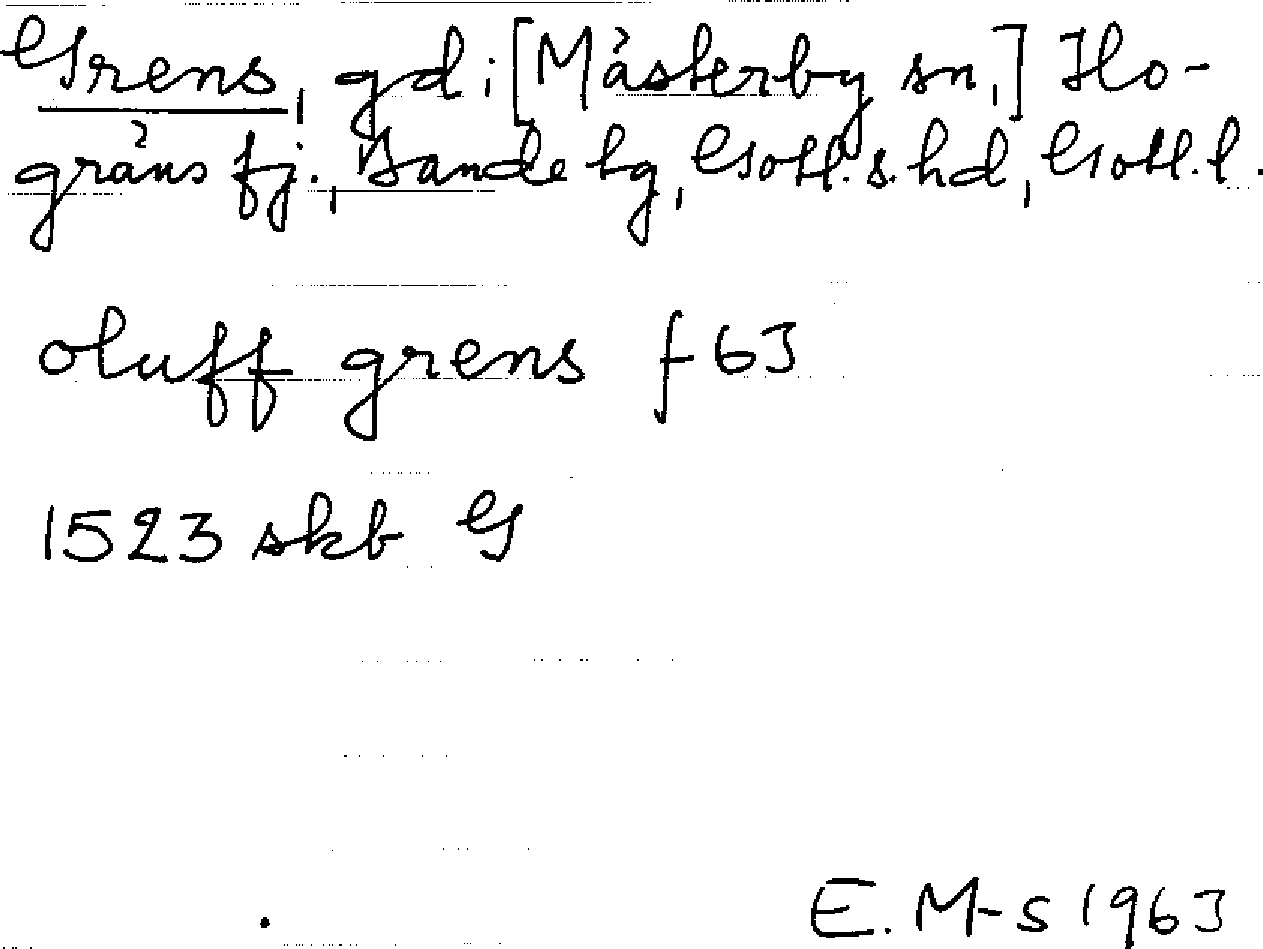 Grens, gd i [Mästerby sn,] Ho-
gräns fj., Bande tg, Gotl. s. hd, Gotl. l.
oluff grens f 63
1523 skb G
E. M-s 1963